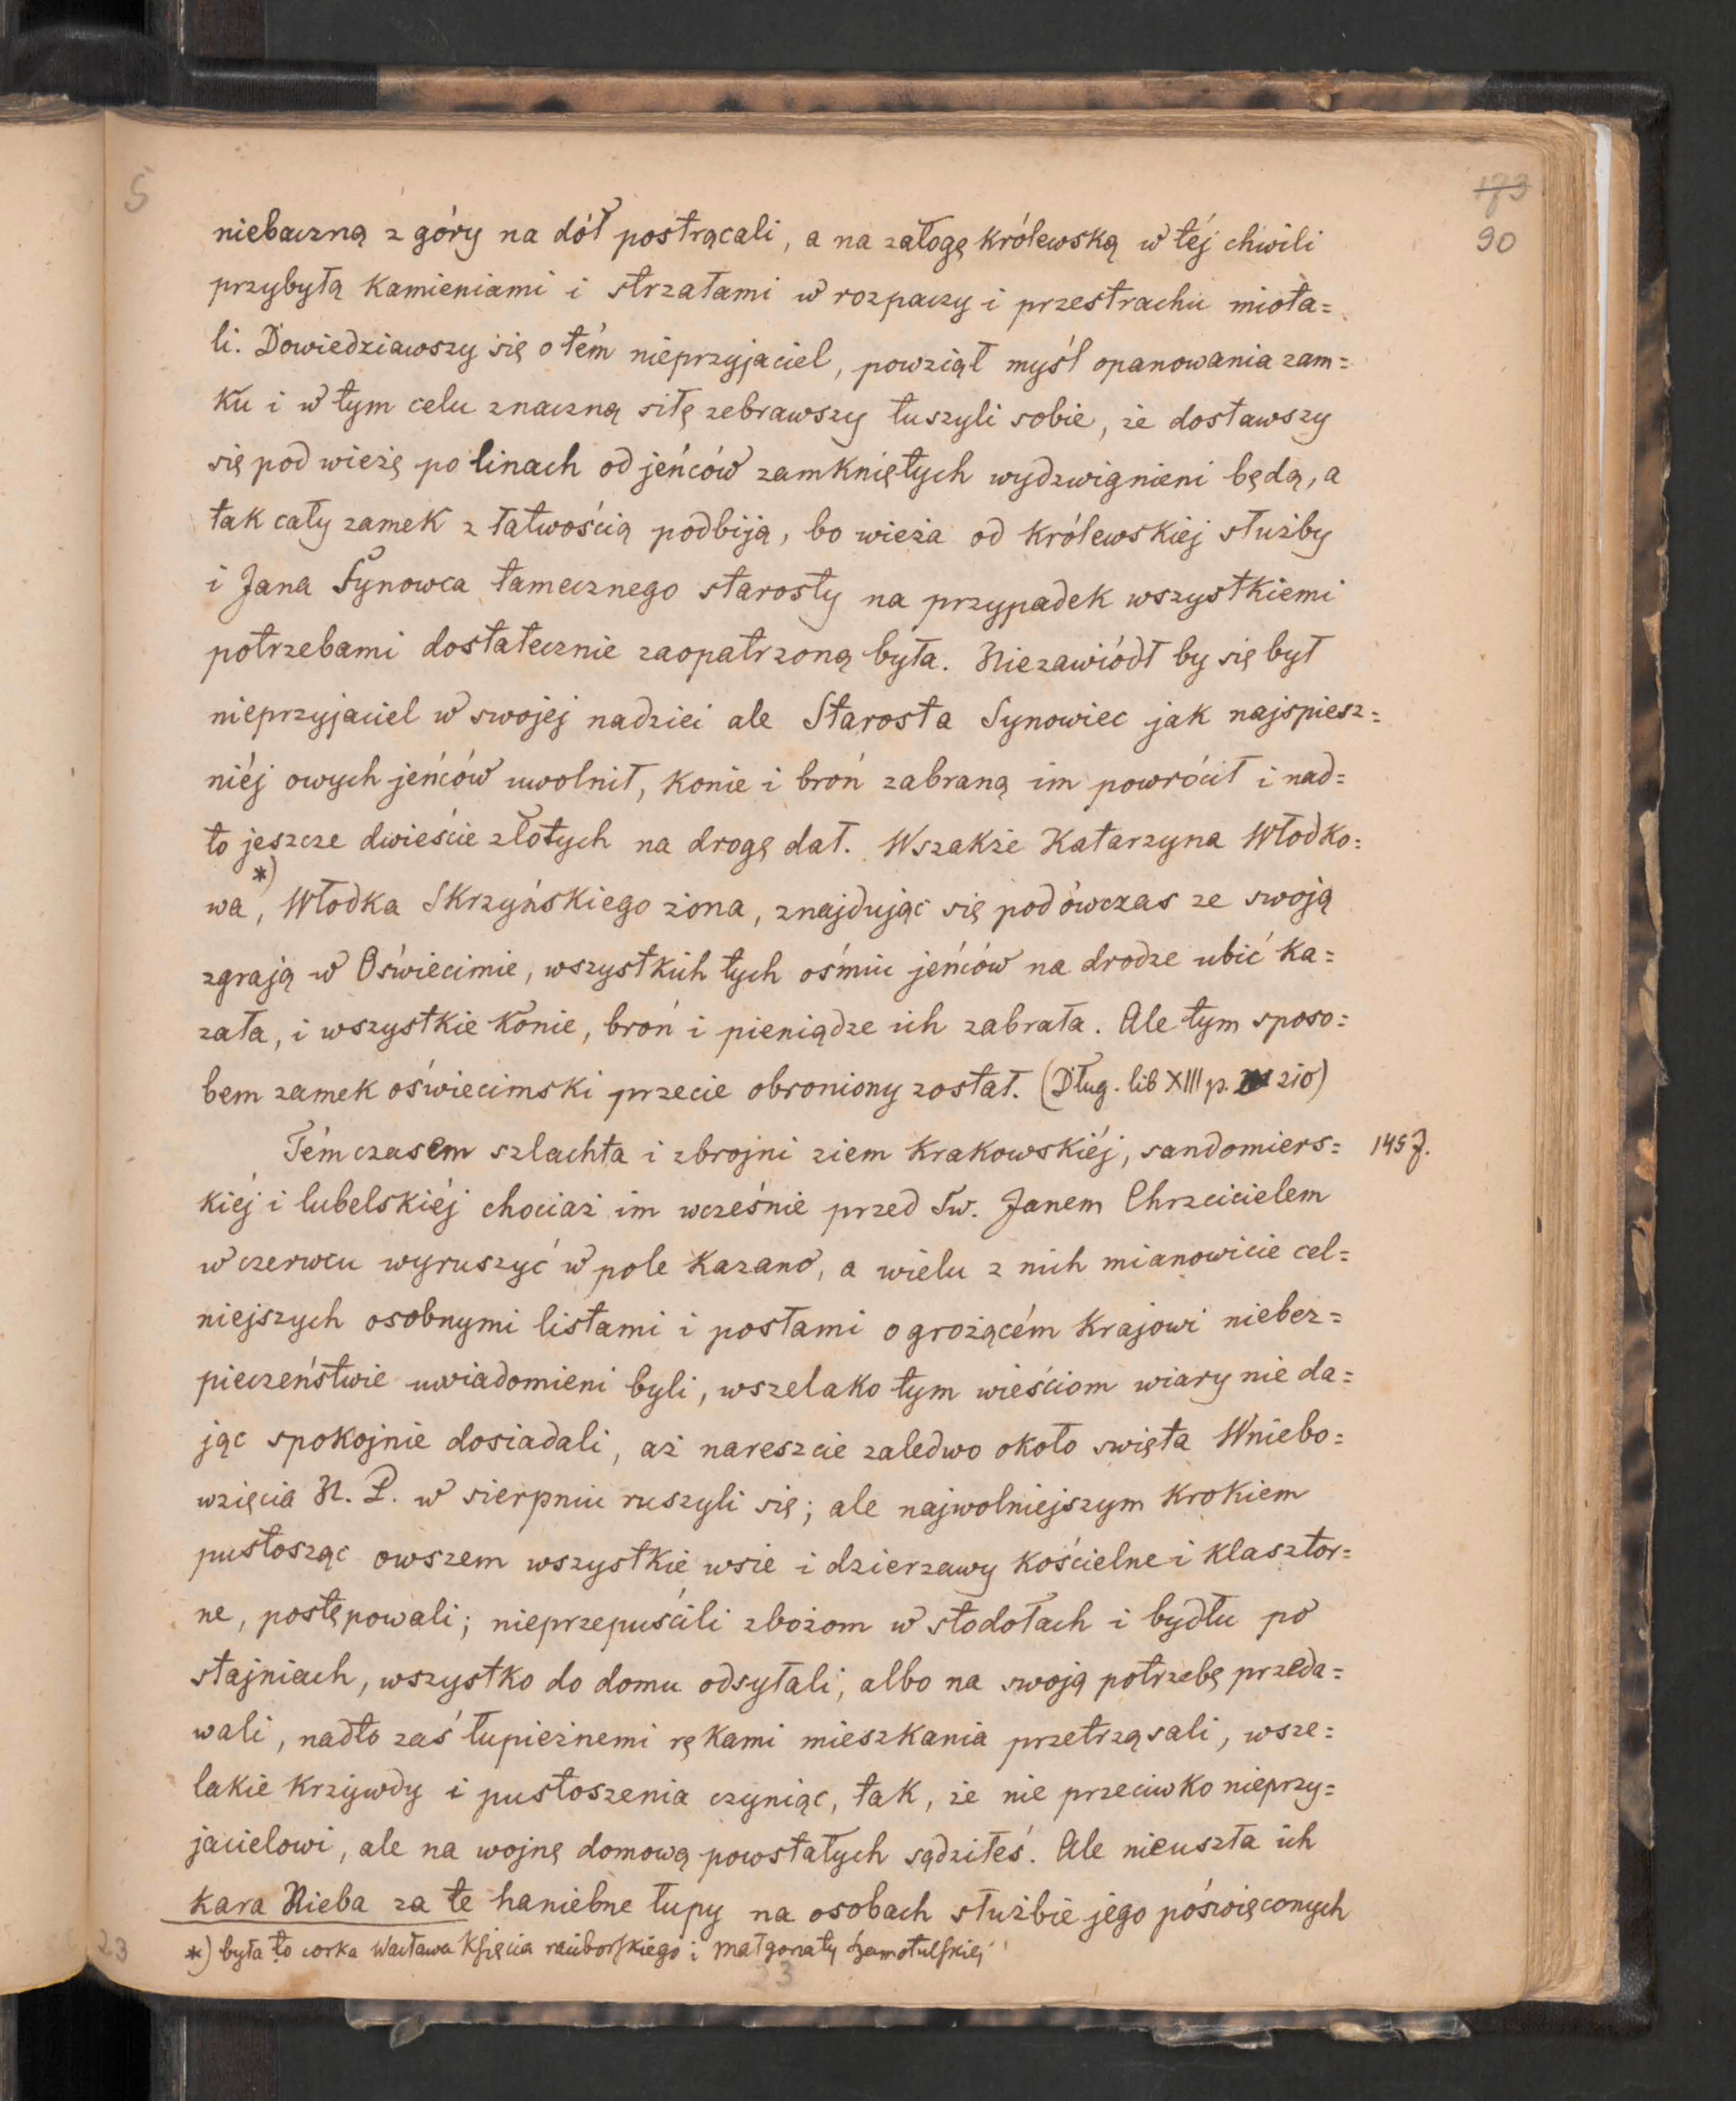 5
173
90
niebaczną z góry na dół postrącali, a na załogę królewską w téj chwili
przybyłą kamieniami i strzałami w rozpaczy i przestrachu miota=
li. Dowiedziawszy się o tém nieprzyjaciel, powziął myśl opanowania zam=
ku i w tym celu znaczną siłę zebrawszy tuszyli sobie, że dostawszy
się pod wieżę po linach od jeńców zamkniętych wydzwignieni będą, a
tak cały zamek z łatwością podbiją, bo wieża od królewskiéj służby
i Jana Synowca tamecznego starosty na przypadek wszystkiemi
potrzebami dostatecznie zaopatrzoną była. Niezawiódł by się był
nieprzyjaciel w swojej nadziei ale Starosta Synowiec jak najspiesz=
niéj owych jeńców uwolnił, konie i broń zabraną im powrócił i nad=
to jeszcze dwieście złotych na drogę dał. Wszakże Katarzyna Włodko=
wa *), Włodka Skrzyńskiego żona, znajdując się podówczas ze swoją
zgrają w Oświecimie, wszystkich tych ośmiu jeńców na drodze ubić ka=
zała, i wszystkie konie, broń i pieniądze ich zabrała. Ale tym sposo=
bem zamek oświecimski przecie obroniony został. (Dług. lib XIII p. 210)
Témczasem szlachta i zbrojni ziem krakowskiéj, sandomiers= 1457.
kiéj i lubelskiéj chociaż im wcześnie przed Św. Janem Chrzcicielem
w czerwcu wyruszyć w pole kazano, a wielu z nich mianowicie cel=
niejszych osobnymi listami i posłami o grożącém krajowi niebez=
pieczeństwie uwiadomieni byli, wszelako tym wieściom wiary nie da=
jąc spokojnie dosiadali, aż nareszcie zaledwo około święta Wniebo=
wzięcia N. P. w sierpniu ruszyli się; ale najwolniejszym krokiem
pustosząc owszem wszystkie wsie i dzierzawy kościelne i klasztor=
ne, postępowali; nieprzepuścili zbożom w stodołach i bydłu po
stajniach, wszystko do domu odsyłali, albo na swoją potrzebę przeda=
wali, nadto zaś łupieżnemi rękami mieszkania przetrząsali, wsze=
lakie krzywdy i pustoszenia czyniąc, tak, że nie przeciwko nieprzy=
jacielowi, ale na wojnę domową powstałych sądziłeś. Ale nieuszła ich
kara Nieba za te haniebne łupy na osobach służbie jego poświęconych
*) była to corka Wacława Księcia raciborskiego i Małgorzaty Szamotulskiej
23
23